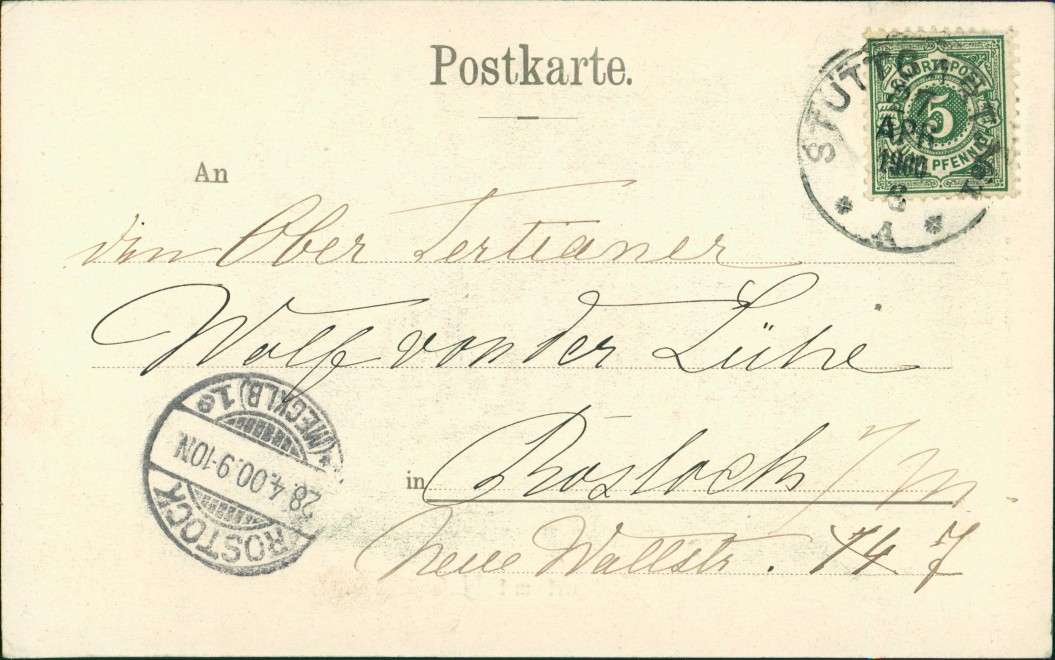 Postkarte.
STUTTG
REICHSPOST
5
PFENNIG
APR
1900
A
An
den Ober Tertianer
Wolf von der Lühe
in Rostock i/M.
Neue Wallstr. 7
ROSTOCK
(MECKLB) 1e
28.4.00.9-10N